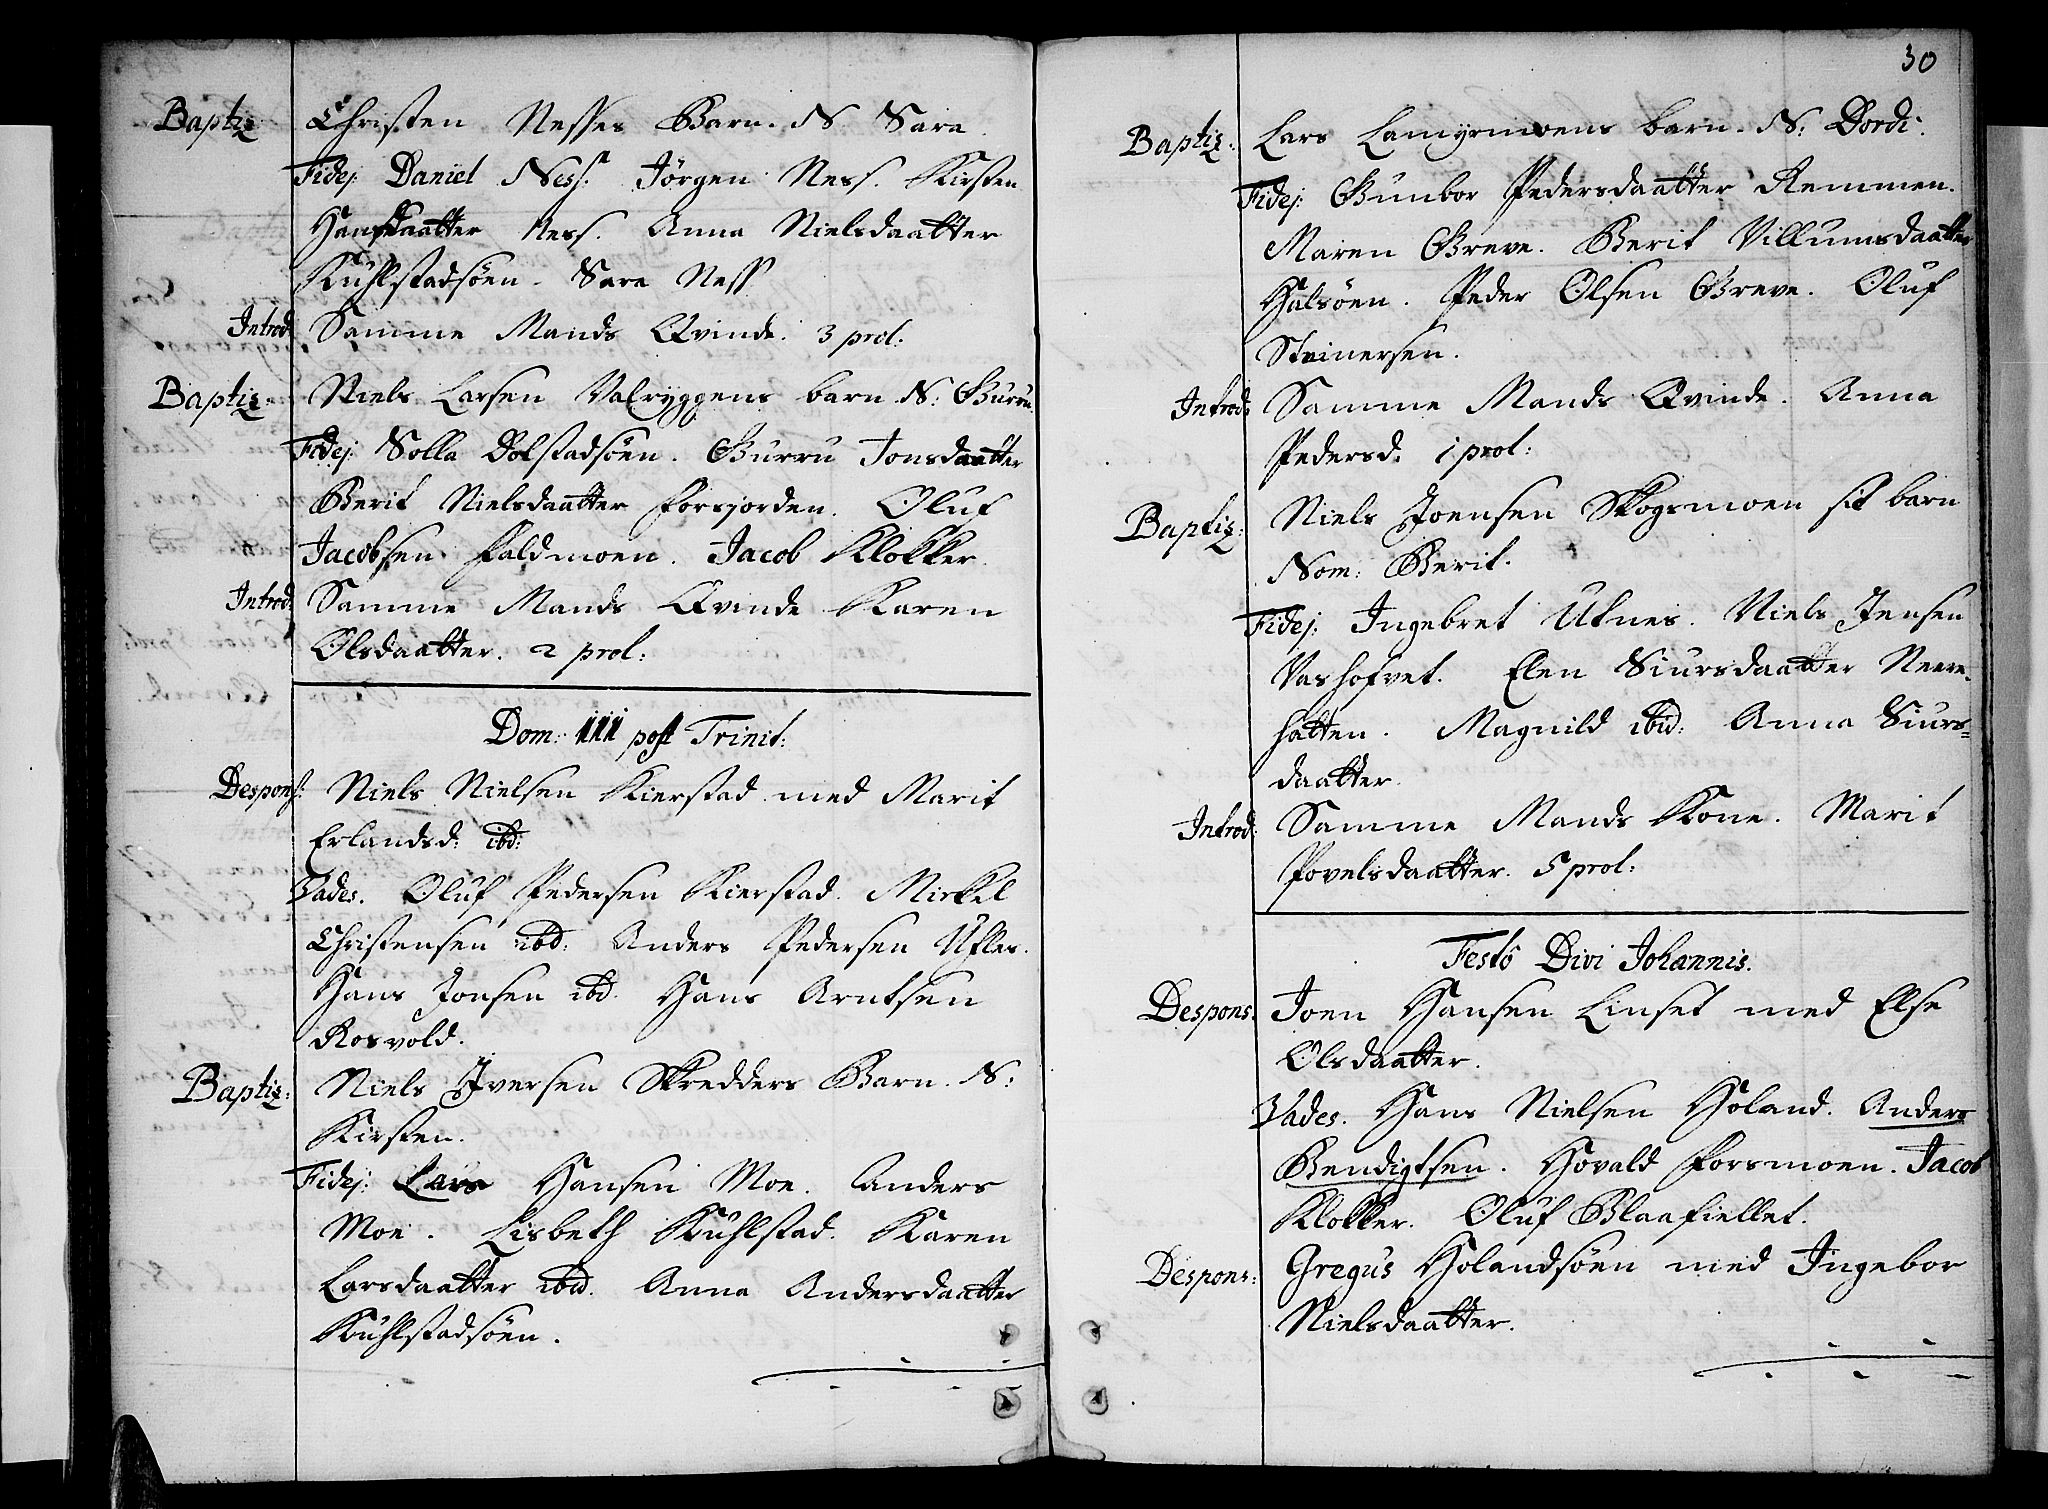 Baptiz: Christen Nesses Barn. N Sara.
Fidej: Daniel Ness. Jörgen Ness. Kirsten
Hansdaatter Ness. Anna Nielsdaatter
Kuhlstadsöen. Sara Ness
Introd: Samme Mands Qvinde. 3 prol:
Baptiz: Niels Larsen Valryggens barn N: Gurru.
Fidej: Solla Dolstadsöen. Gurru Jonsdaatter
Berit Nielsdaatter Forsjorden. Oluf
Jacobsen Faldmoen. Jacob Klokker.
Introd: Samme Mands Qvinde Karen
Olsdaatter. 2 prol:
Dom: III post Trinit:
Despons: Niels Nielsen Kierstad med Marit
Erlandsd: ibd:
Vades. Oluf Pedersen Kierstad. Mickel
Christensen ibd: Anders Pedersen Ufles.
Hans Jonsen ibd. Hans Arntsen
Rosvold.
Baptiz: Niels Iversen Skredders Barn. N:
Kirsten.
Fidej: Lars Hansen Moe. Anders
Moe. Lisbeth Kuhlstad. Karen
Larsdaatter ibid. Anna Andersdaatter
Kuhlstadsöen.
30
Baptiz: Lars Lamyrmoens barn. N: Dordi.
Fidej: Gunbor Pedersdaatter Remmen.
Maren Greve. Berit Villumsdaatter
Halsöen. Peder Olsen Greve. Oluf
Steinersen.
Introd: Samme Mands Qvinde. Anna
Pedersd. 1 prol:
Baptiz: Niels Joensen Skogsmoen sit barn
Nom: Berit.
Fidej: Ingebret Utnes. Niels Jensen
Vashofvet. Elen Siursdaatter Neere-
hatten. Magnild ibid: Anna Siurs=
daatter.
Introd: Samme Mands Kone. Marit
Povelsdaatter. 5 prol:
Festo Divi Johannis.
Despons. Joen Hansen Linset med Else
Olsdaatter.
Vades. Hans Nielsen Holand. Anders
Bendigtsen. Hovald Forsmoen. Jacob
Klokker. Oluf Blaafiellet.
Despons: Gregus Holandsöen med Ingebor
Nielsdaatter.